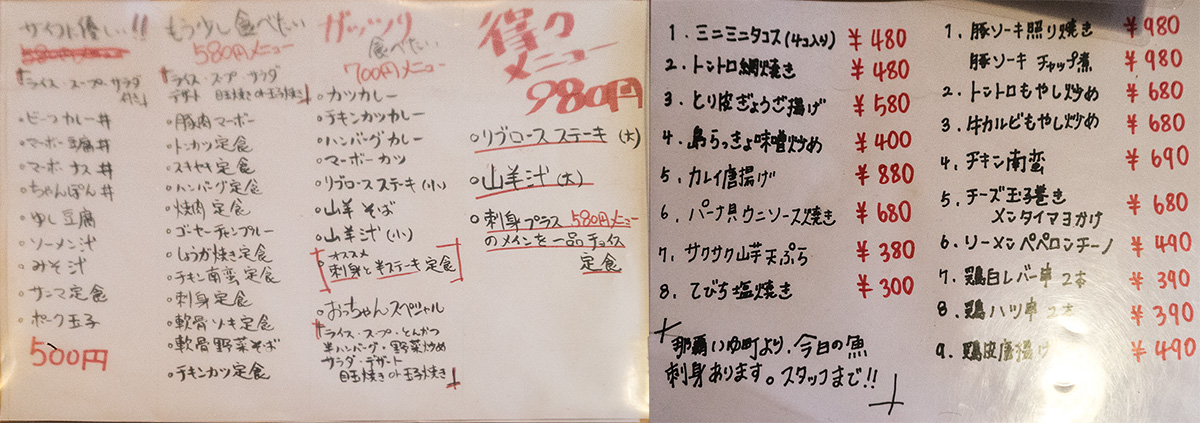 サイフに優しい!!
ライス・スープ・サラダ
付き
。ビーフカレー丼
。マーボー豆腐丼
。マーボーナス丼
。ちゃんぽん丼
。ゆし豆腐
。ソーメン汁
。みそ汁
。サンマ定食
。ポーク玉子
500円
もう少し食べたい
580円メニュー
ライス・スープ サラダ
デザート 目玉焼きor玉子焼き
。豚肉マーボー
。トンカツ定食
。スキヤキ定食
。ハンバーグ定食
。焼肉定食
。ゴーヤーチャンプルー
。しょうが焼き定食
。チキン南蛮定食
。刺身定食
。軟骨ソキ定食
。軟骨野菜そば
。チキンカツ定食
ガッツリ
食べたい
700円メニュー
。カツカレー
。チキンカツカレー
。ハンバーグカレー
。マーボーカツ
。リブロースステーキ(小)
。山羊そば
。山羊汁(小)
オススメ
刺身と半ステーキ定食
。おっちゃんスペシャル
ライス・スープ・とんかつ
半ハンバーグ・野菜炒め
サラダ・デザート
目玉焼きor玉子焼き
得々
メニュー
980円
。リブロースステーキ(大)
。山羊汁(大)
。刺身プラス580円メニュー
のメインを一品チョイス
定食
1. ミニミニタコス(4コ入り) ¥480
2. トントロ網焼き ¥480
3. とり皮ぎょうざ揚げ ¥580
4. 島らっきょ味噌炒め ¥400
5. カレイ唐揚げ ¥880
6. パーナ貝ウニソース焼き ¥680
7. サクサク山芋天ぷら ¥380
8. てびち塩焼き ¥300
那覇いゆ町より、今日の魚
刺身あります。スタッフまで!!
1. 豚ソーキ照り焼き ¥980
豚ソーキ チャップ煮 ¥980
2. トントロもやし炒め ¥680
3. 牛カルビもやし炒め ¥680
4. チキン南蛮 ¥690
5. チーズ玉子巻き
メンタイマヨがけ ¥680
6. ソーメンペペロンチーノ ¥490
7. 鶏白レバー串 2本 ¥390
8. 鶏ハツ串 2本 ¥390
9. 鶏皮唐揚げ ¥490